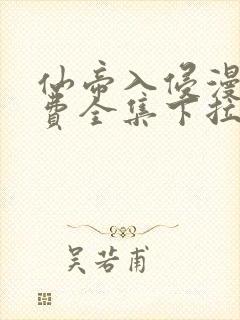 仙帝入侵漫
费全集下拉
吴若甫